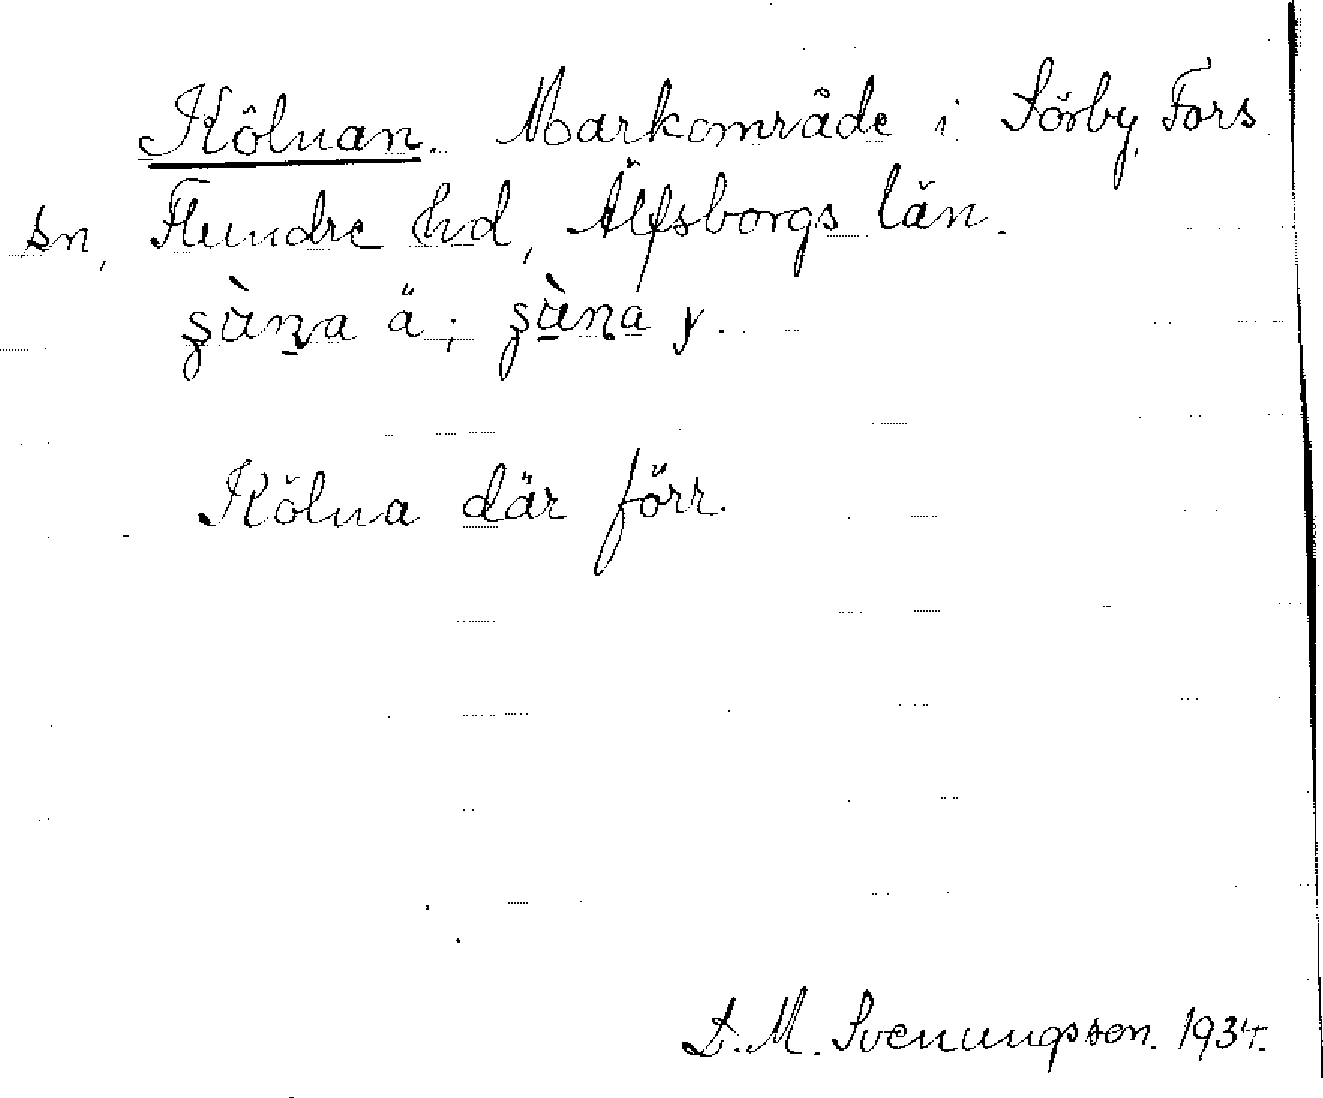 Kölnan. Markområde i Sörby, Fors
sn, Flundre hd, Älfsborgs län.
ä; y.
Kölna där förr.
D. M. Svenungsson. 1934.